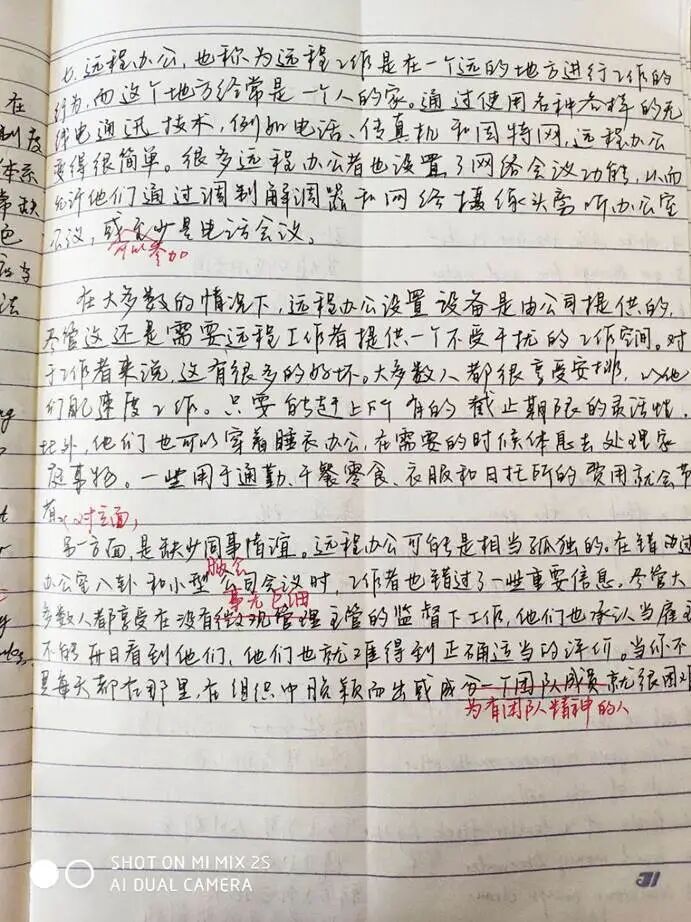 七.远程办公,也称为远程工作是在一个远的地方进行工作的
行为,而这个地方经常是一个人的家。通过使用各种各样的无
线电通迅技术,例如电话、传真机和因特网,远程办公
变得很简单。很多远程办公者也设置了网络会议功能,从而
允许他们通过调制解调器和网络摄像头旁听办公室
会议,或至少是电话会议。
可以参加
在大多数的情况下,远程办公设置设备是由公司提供的,
尽管这还是需要远程工作者提供一个不受干扰的工作空间。对
于工作者来说,这有很多的好坏。大多数人都很享受安排,以他
们的速度工作。只要能赶上所有的截止期限的灵活性。
此外,他们也可以穿着睡衣办公,在需要的时候休息去处理家
庭事物。一些用于通勤、午餐零食、衣服和日托所的费用就会节
省。
对立面,
另一方面,是缺少同事情谊。远程办公可能是相当孤独的。在错过
办公室八卦和小型公司会议时,工作者也错过了一些重要信息。尽管大
事无巨细
多数人都享受在没有微观管理主管的监督下工作,他们也承认当雇主
不能每日看到他们,他们也就难得到正确适当的评价。当你不
是每天都在那里,在组织中脱颖而出或成为一个团队成员就很困难
为有团队精神的人
在
制度
体系
色
当
法
ng
t
r
y
31
SHOT ON MI MIX 2S
AI DUAL CAMERA